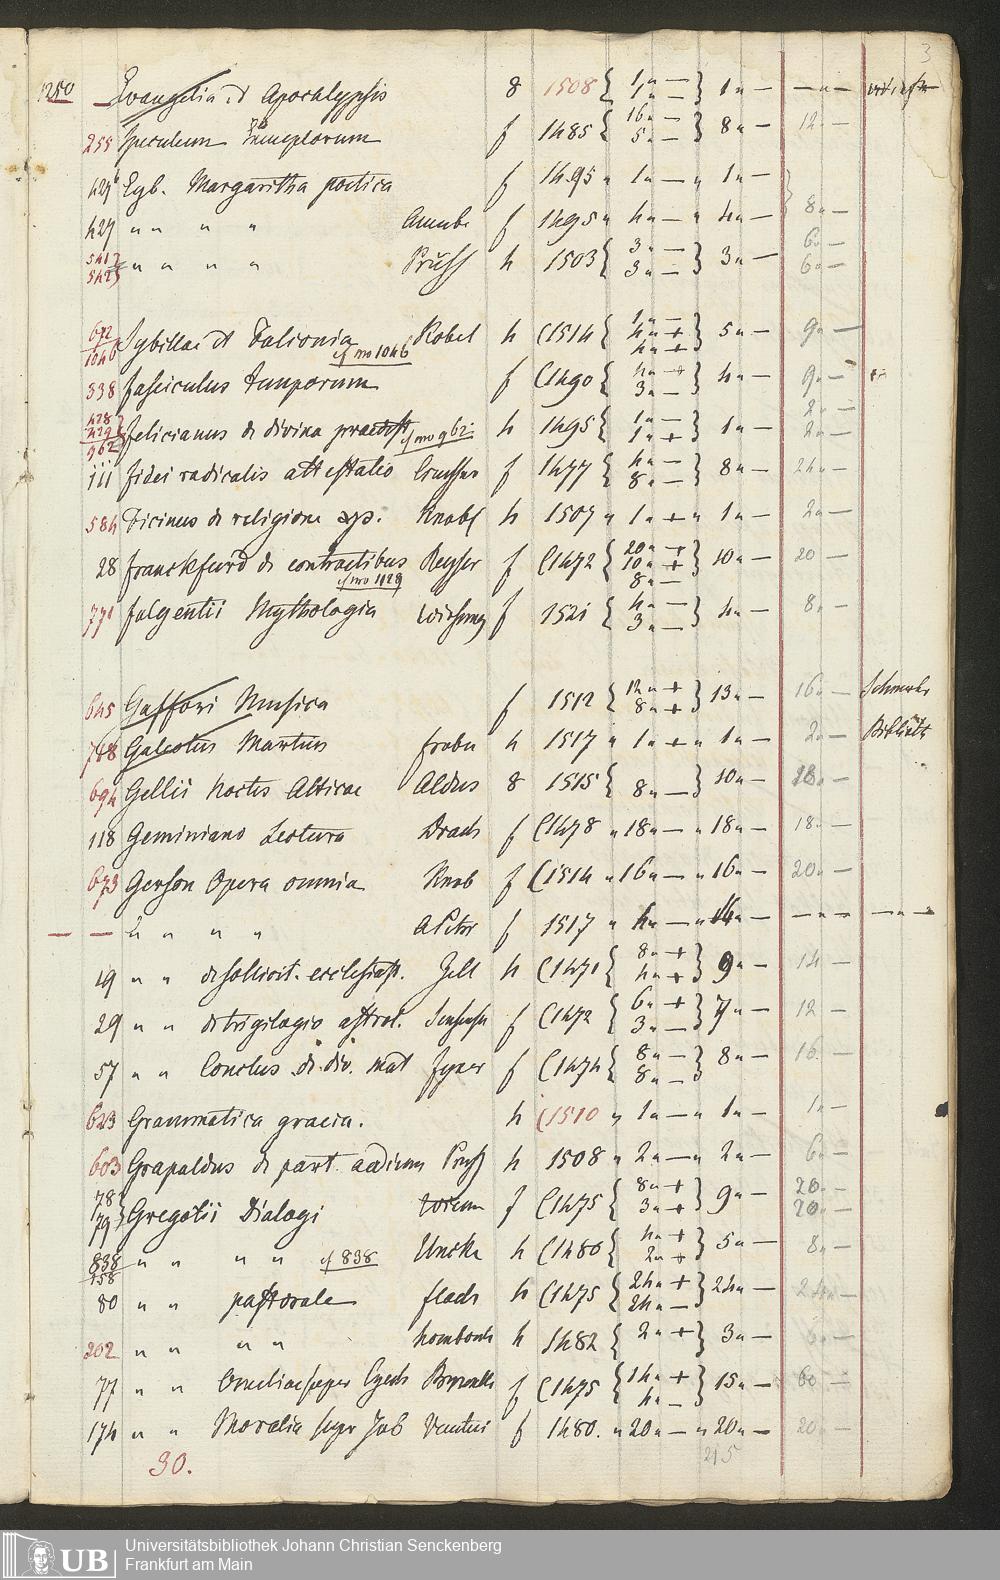 3
1250 Evangelia et Apochalypsis 8 1508 { 1 " — 1 " — } 1 " — — " —
255 Speculum Exemplorum f 1485 { 16 " — 5 " — } 8 " — 12 " —
429b Eyb. Margaritha poetica f 1495 " 1 " — " 1 " —
429 " " " " f 1495 " 4 " — " 4 " — 8 " —
541 542 " " " " Prüss 4 1503 { 3 " — 3 " — } 3 " — 6 " — 6 " —
672 1046 Sybillae et Falionia cf no 1046 Kobel 4 (1514 { 1 " — 4 " + 4 " + } 5 " — 9 " —
338 fasciculus temporum f (1490 { 4 " + 3 " — } 4 " — 9 " —
428 429 962 felicianus de divina cf no 962 4 1495 { 1 " — 1 " + } 1 " — 2 " — 2 " —
111 fidei radicalis attestatio Creussner f 1477 { 4 " — 8 " — } 8 " — 24 " —
584 Ficinus de religione xps. Knobl 4 1507 " 1 " + " 1 " — 2 " —
28 franckfurd de contractibus cf no 1129 Reyser f (1472 { 20 " + 10 " + 8 " — } 10 " — 20 —
771 fulgentii Mythologia Wirsung f 1521 { 4 " — 3 " — } 4 " — 8 " —
645 Gaffori Musica f 1512 { 12 " + 8 " + } 13 " — 16 " —
768 Galeotus Martius froben 4 1517 " 1 " + " 1 " — 2 " —
694 Gellii Noctes Atticae Aldus 8 1515 { 8 " — } 10 " — 18 " —
118 Geminiano Lectura Drach f (1478 " 18 " — " 18 " — 18 " —
673 Gerson Opera omnia Knob f (1514 " 16 " — " 16 " — 20 " —
— — " " " " f 1517 " 4 " — " 4 " — — " — — " —
19 " " de sollicit. ecclesiast. Zell 4 (1471 { 8 " + 4 " + } 9 " — 14 —
29 " " de trigilogio astrol. f (1472 { 6 " + 3 " — } 7 " — 12 —
57 " " Conclus. de div. mat Zyner f (1474 { 8 " — 8 " — } 8 " — 16 —
623 Grammatica graeca. 4 (1510 " 1 " — " 1 " — 1 " —
603 Grapaldus de part. aedium Prüss 4 1508 " 2 " — " 2 " — 6 " —
78 79 } Gregorii Dialogi f (1475 { 8 " + 3 " + } 9 " — 20 " — 20 " —
838 158 " " " " cf 838 4 (1480 { 4 " + 2 " + } 5 " — 8 " —
80 " " pastorale flach 4 (1475 { 24 " + 24 " — } 24 " — 24 " —
202 " " " " Hombouch 4 1482 { 2 " + } 3 " — 6 " —
77 " " Omeliae super Ezech f (1475 { 14 " + 4 " — } 15 " — 60 —
174 " " Moralia super Job f 1480. " 20 " — " 20 " — 20 —
30. 215
UB Universitätsbibliothek Johann Christian Senckenberg
Frankfurt am Main